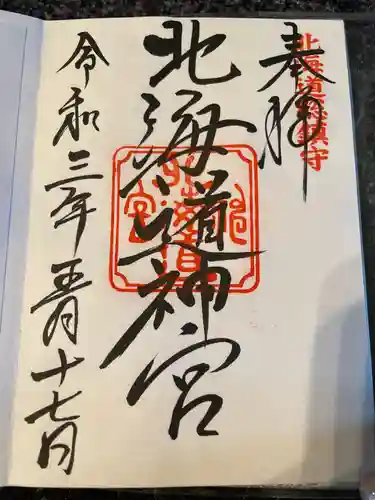 奉拝
北海道総鎮守
北海道神宮
北海道神宮
令和三年五月十七日